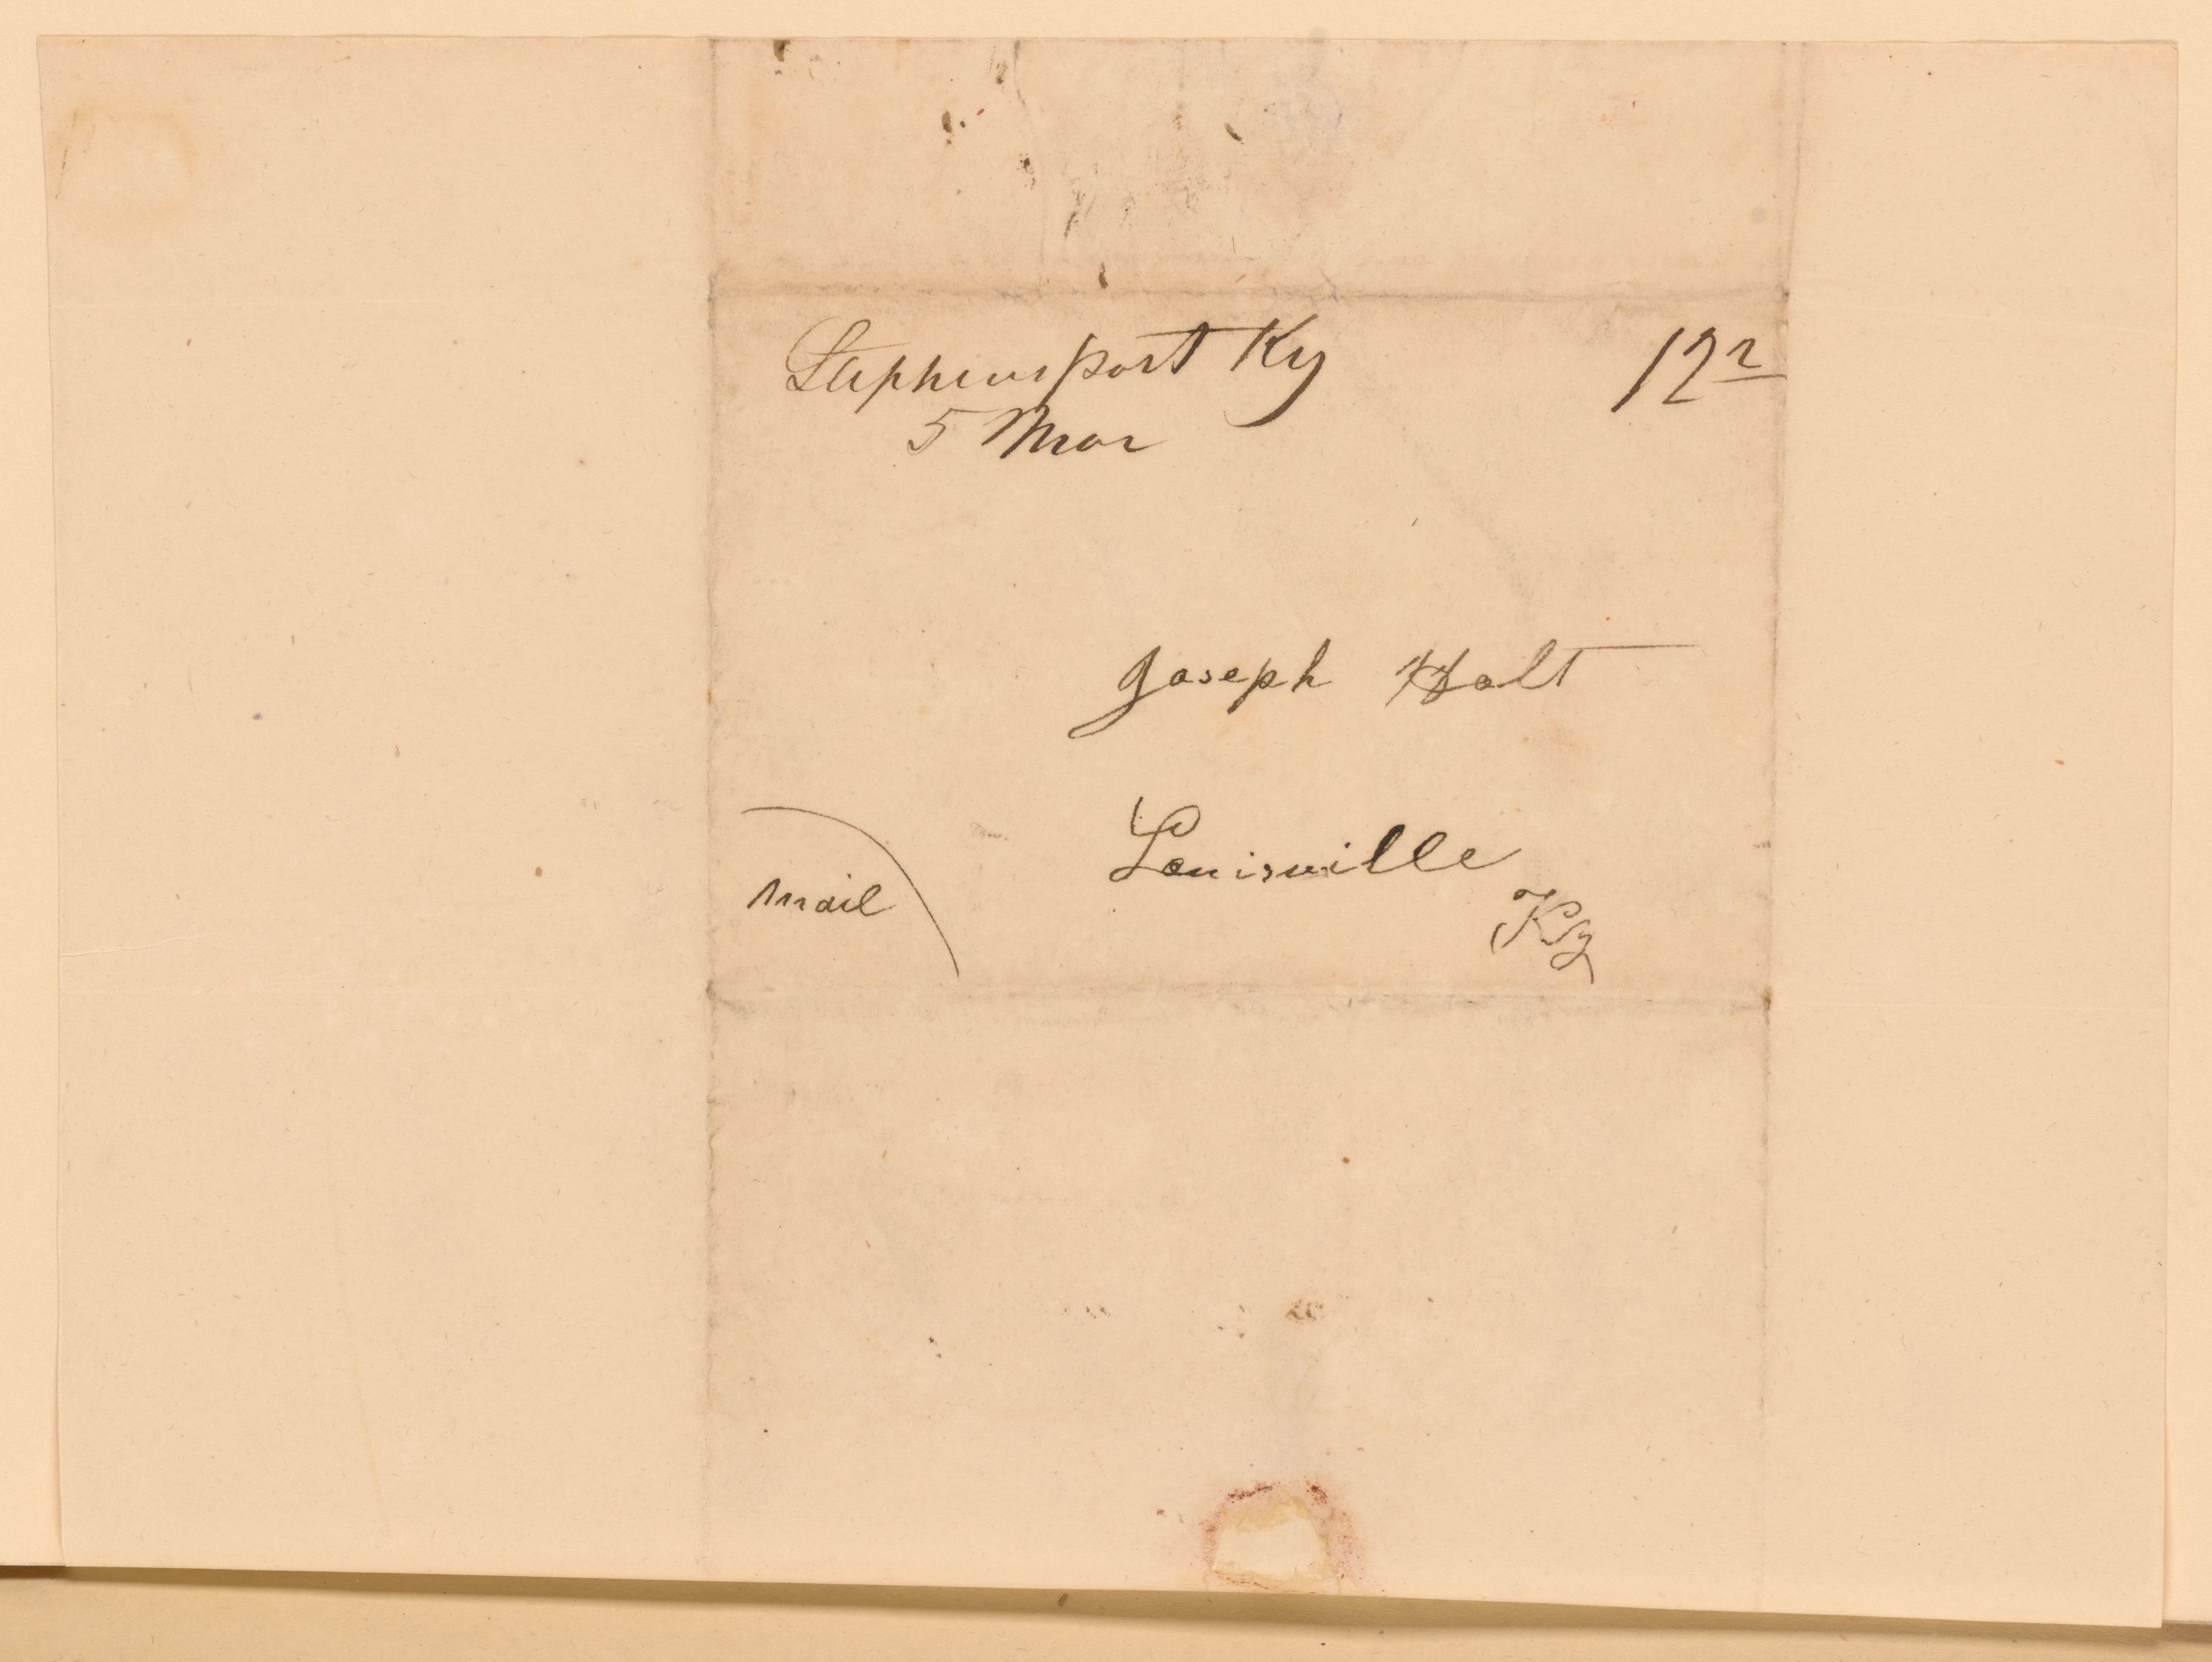 Stephensport Ky
5 Mar
12 2
Joseph Holt
Louisville
Ky
Mail